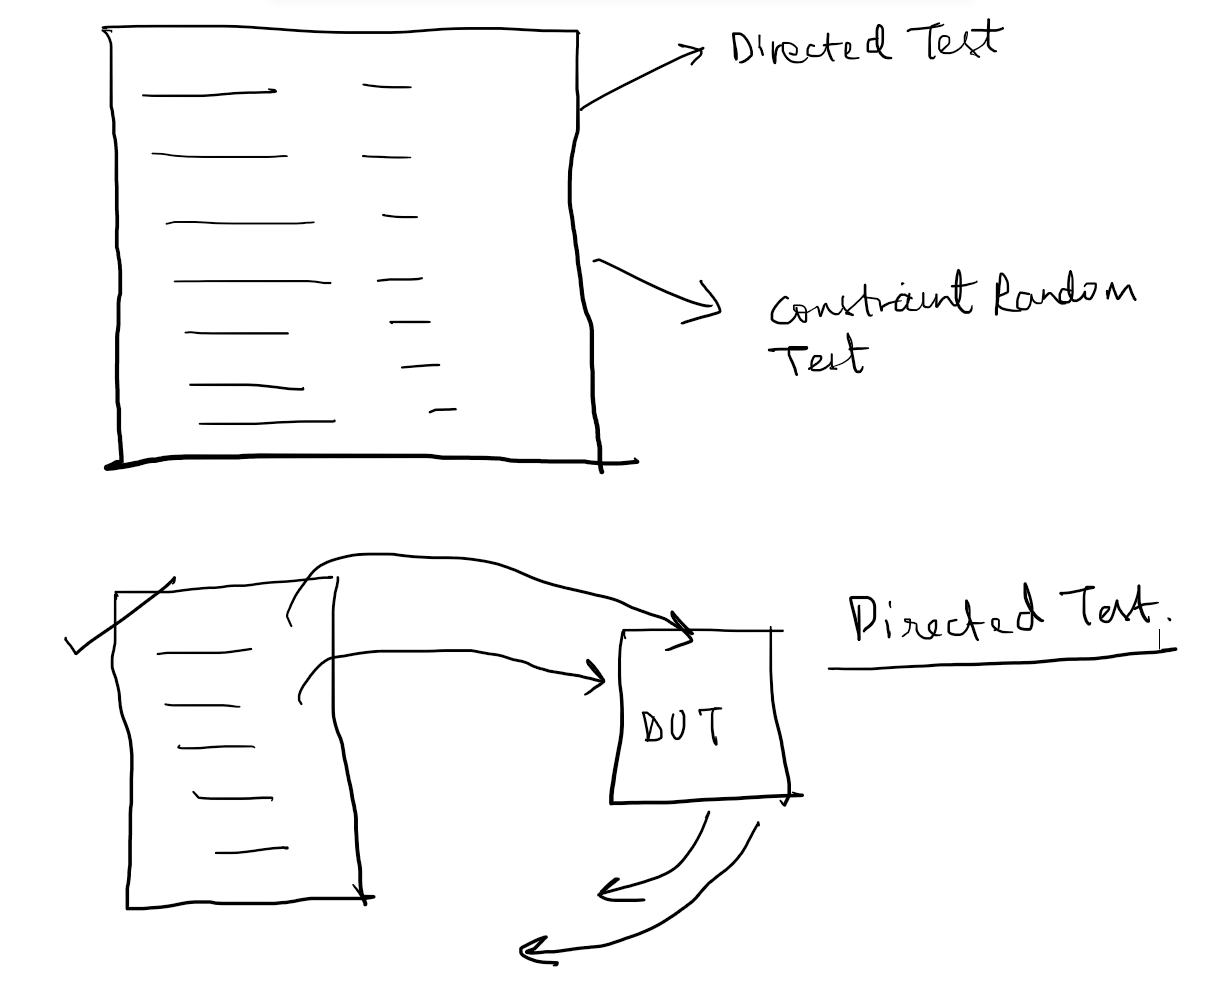 Directed Test
Constraint Random
Test
Directed Test.
DUT